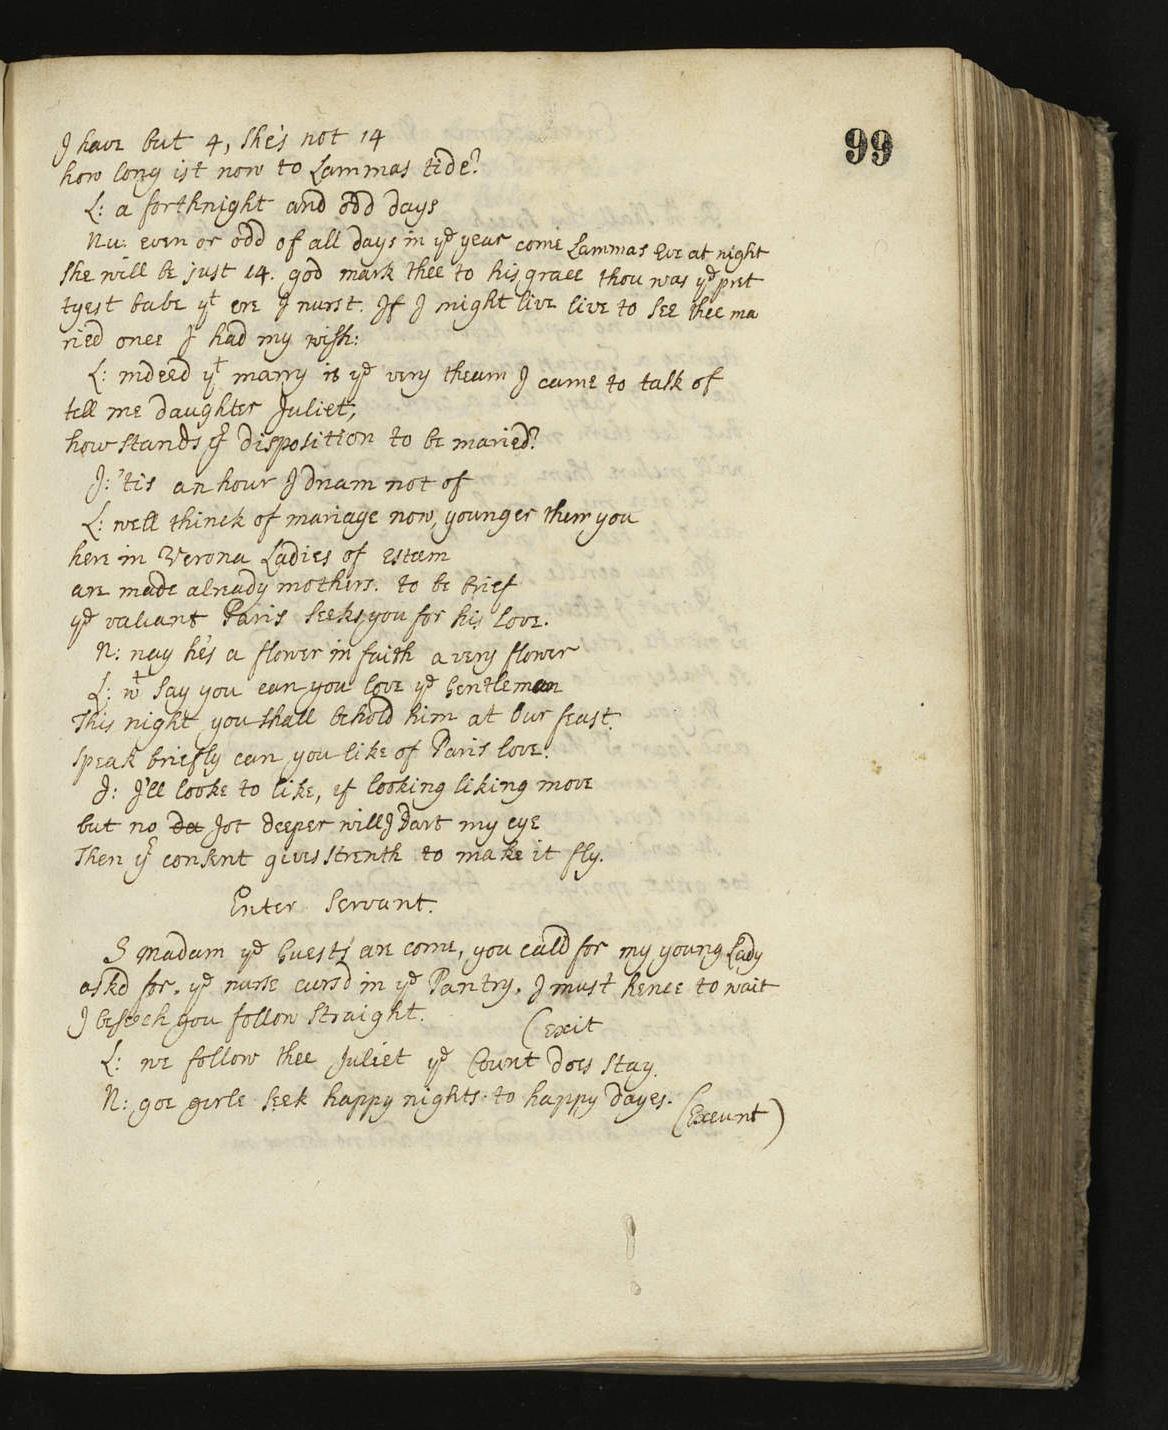 99
I have but 4, she's not 14
how long ist now to Lammas tide?
L: a forthnight and odd days
Nu: even or odd of all days in yᵉ year come Lammas Eve at night
she will be just 14. god mark thee to his grace thou was yᵉ pret
tyest babe yᵗ ere I nurst. If I might live live to see thee ma
ried once I had my wish:
L: indeed yᵗ marry is yᵉ very theam I came to talk of
tell me daughter Juliet,
how stands yʳ disposition to be maried?
J: 'tis an hour I dream not of
L: well thinck of mariage now, younger then you
here in Verona Ladies of esteem
are made already mothers. to be brief
yᵉ valiant Paris seeks you for his love.
N: nay he's a flower in faith a very flower
L: wᵗ say you can you love yᵉ Gentleman
This night you shall behold him at our feast.
speak briefly can you like of Paris love?
J: I'll looke to like, if looking liking move
but no de Jot deeper will I dart my eye
Then yʳ consent gives strenth to make it fly.
Enter Servant.
S Madam yᵉ Guests are come, you calld for my young Lady
askd for. yᵉ nurse curs'd in yᵉ Pantry. I must hence to wait
I beseech you follow straight. (exit
L: we follow thee Juliet yᵉ Count does stay.
N: goe girle seek happy nights to happy dayes.
(Exeunt)